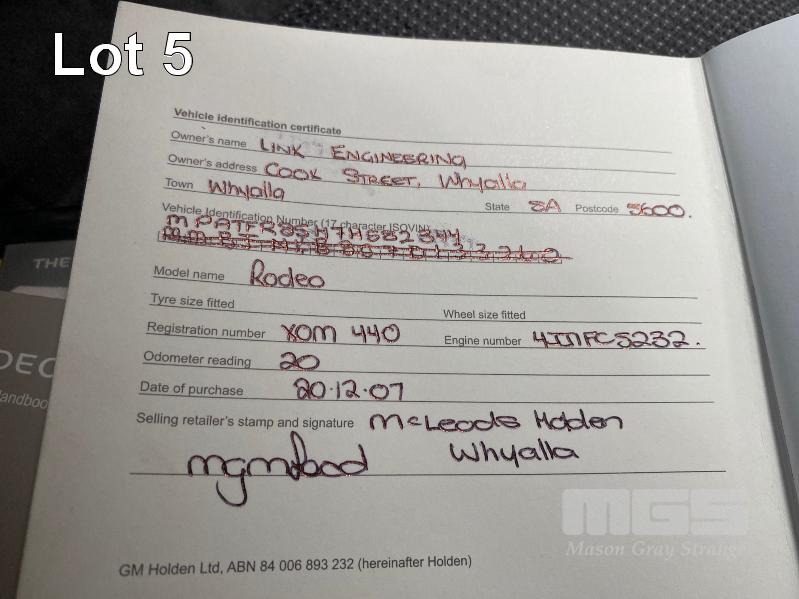 Lot 5
Vehicle identification certificate
Owner's name LINK ENGINEERING
Owner's address COOK STREET, Whyalla
Town Whyalla State SA Postcode 5600.
Vehicle Identification Number (17 character ISOVIN)
MPATFR85H7H582844
Model name Rodeo
Tyre size fitted Wheel size fitted
Registration number XOM 440 Engine number 4JJ1FC5232.
Odometer reading 20
Date of purchase 20.12.07
Selling retailer's stamp and signature McLeods Holden
Whyalla
GM Holden Ltd, ABN 84 006 893 232 (hereinafter Holden)
THE
DEC
andboo
MGS
Mason Gray Strange